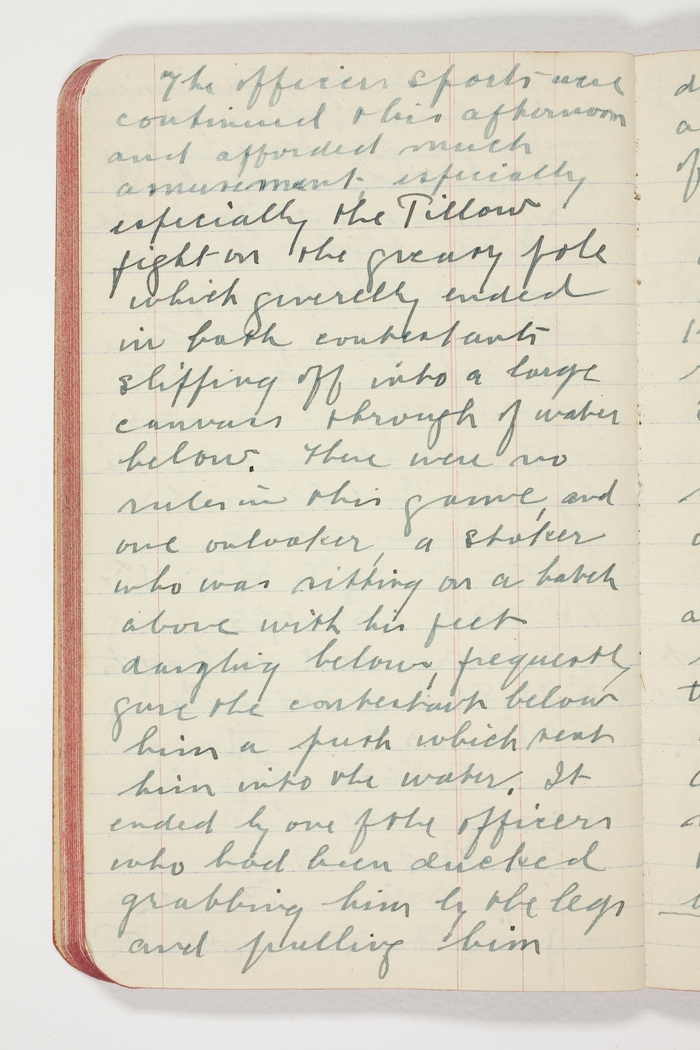 The officers sports were
continued this afternoon
and afforded much
amusement, especially
especially the Pillow
fight on the greasy pole
which generally ended
in both contestants
slipping off into a large
canvass through of water
below. There were no
rules in this game, and
one onlooker, a stoker
who was sitting on a hatch
above with his feet
dangling below, frequently
gave the contestant below
him a push which sent
him into the water. It
ended by one of the officers
who had been ducked
grabbing him by the legs
and pulling him